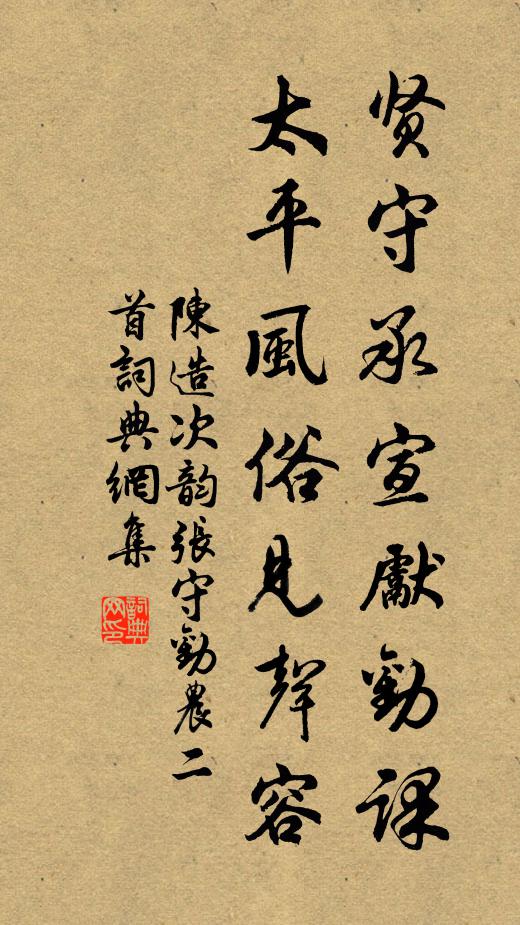 贤守承宣獻勸課
太平風俗見聲容
陳造次韵張守勸農二
首詞典網集
詞典
网印